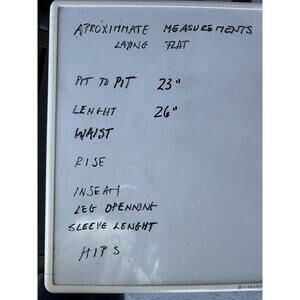 APROXIMMATE MEASUREMENTS
LAYING FLAT
PIT TO PIT 23"
LENGHT 26"
WAIST
RISE
INSEAM
LEG OPENNING
SLEEVE LENGHT
HIPS